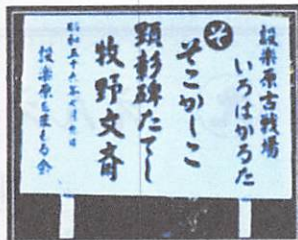 設楽原古戦場
いろはかるた
そ
そこかしこ
顕彰碑たてし
牧野文斎
昭和五十六年七月
設楽原をまもる会